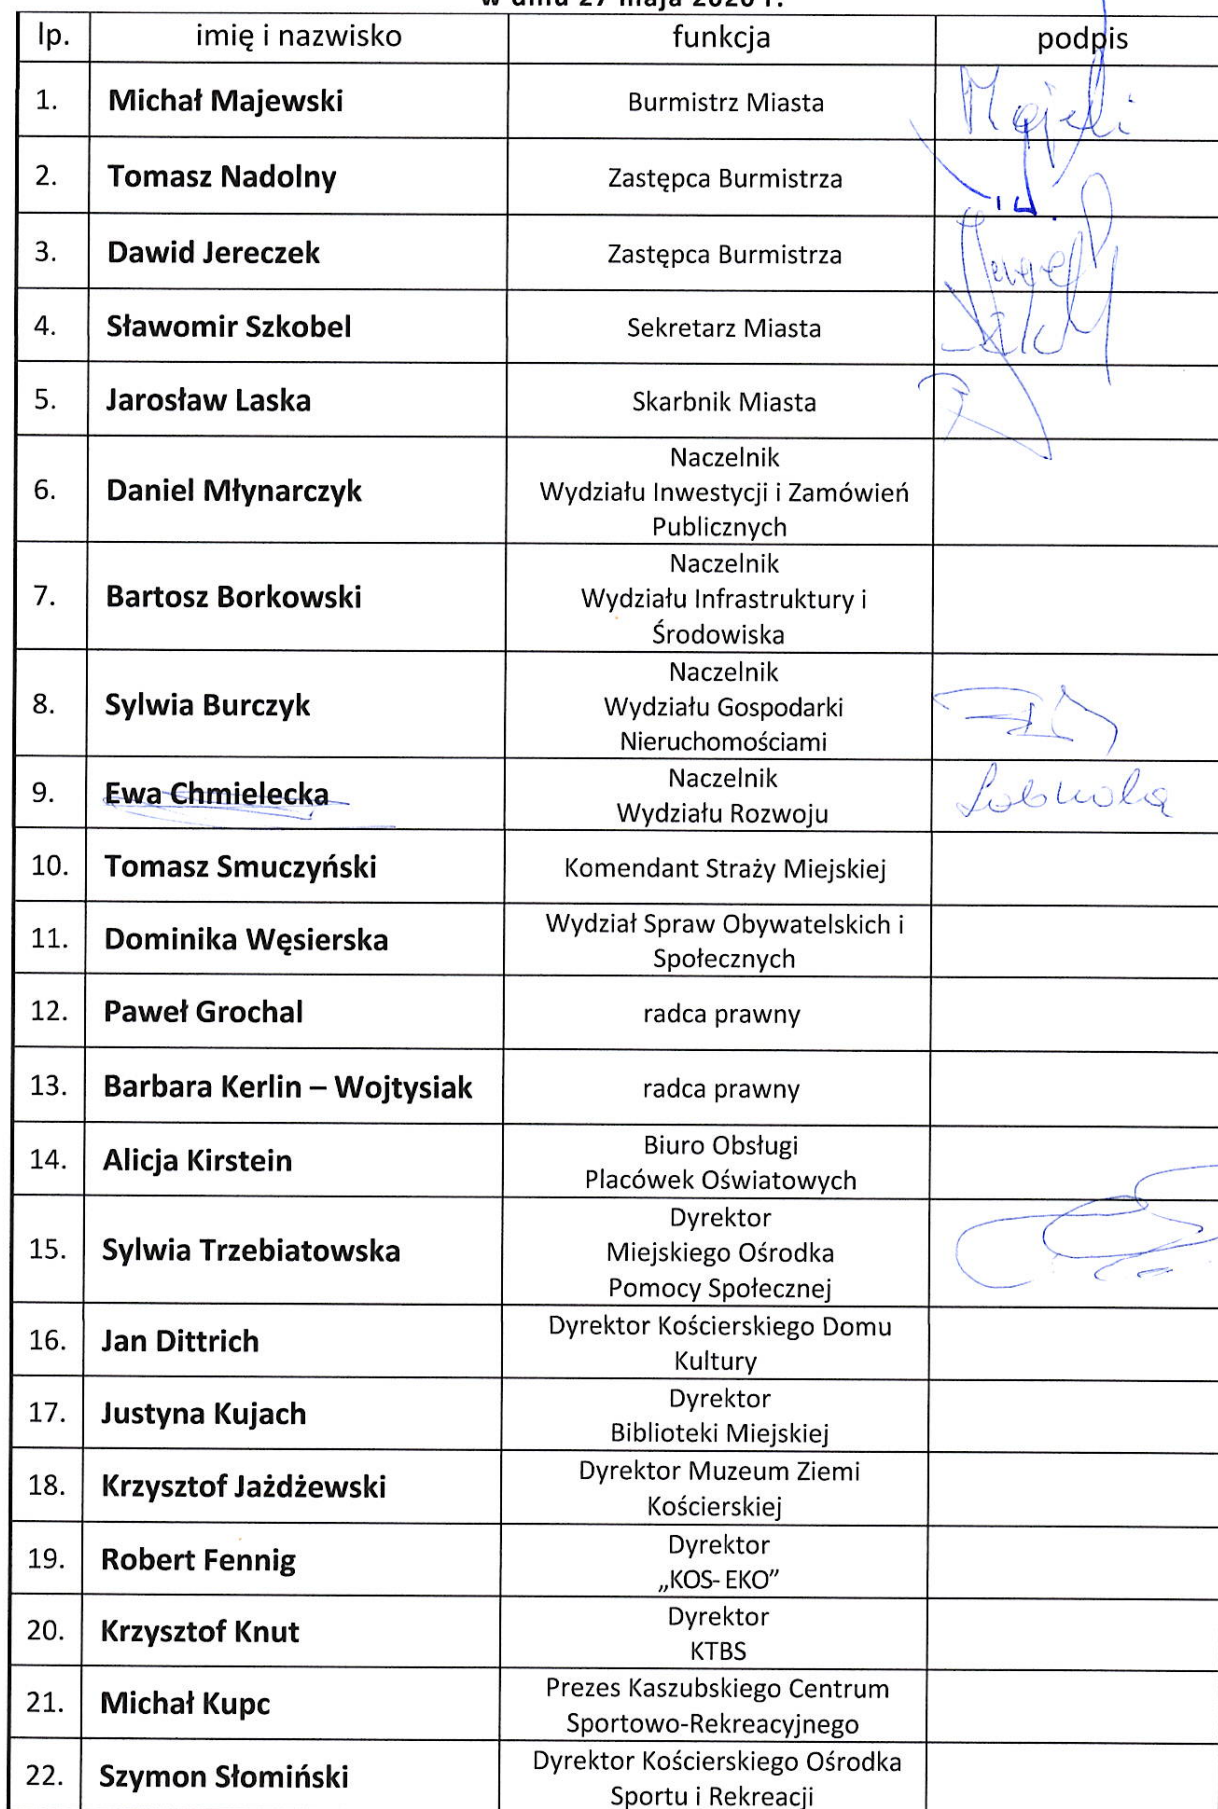 w dniu 27 maja 2020 r.
lp. imię i nazwisko funkcja podpis
1. Michał Majewski Burmistrz Miasta
2. Tomasz Nadolny Zastępca Burmistrza
3. Dawid Jereczek Zastępca Burmistrza
4. Sławomir Szkobel Sekretarz Miasta
5. Jarosław Laska Skarbnik Miasta
6. Daniel Młynarczyk
Naczelnik
Wydziału Inwestycji i Zamówień
Publicznych
7. Bartosz Borkowski
Naczelnik
Wydziału Infrastruktury i
Środowiska
8. Sylwia Burczyk
Naczelnik
Wydziału Gospodarki
Nieruchomościami
9. Ewa Chmielecka
Naczelnik
Wydziału Rozwoju
10. Tomasz Smuczyński Komendant Straży Miejskiej
11. Dominika Węsierska
Wydział Spraw Obywatelskich i
Społecznych
12. Paweł Grochal radca prawny
13. Barbara Kerlin – Wojtysiak radca prawny
14. Alicja Kirstein
Biuro Obsługi
Placówek Oświatowych
15. Sylwia Trzebiatowska
Dyrektor
Miejskiego Ośrodka
Pomocy Społecznej
16. Jan Dittrich
Dyrektor Kościerskiego Domu
Kultury
17. Justyna Kujach
Dyrektor
Biblioteki Miejskiej
18. Krzysztof Jażdżewski
Dyrektor Muzeum Ziemi
Kościerskiej
19. Robert Fennig
Dyrektor
„KOS- EKO”
20. Krzysztof Knut
Dyrektor
KTBS
21. Michał Kupc
Prezes Kaszubskiego Centrum
Sportowo-Rekreacyjnego
22. Szymon Słomiński
Dyrektor Kościerskiego Ośrodka
Sportu i Rekreacji